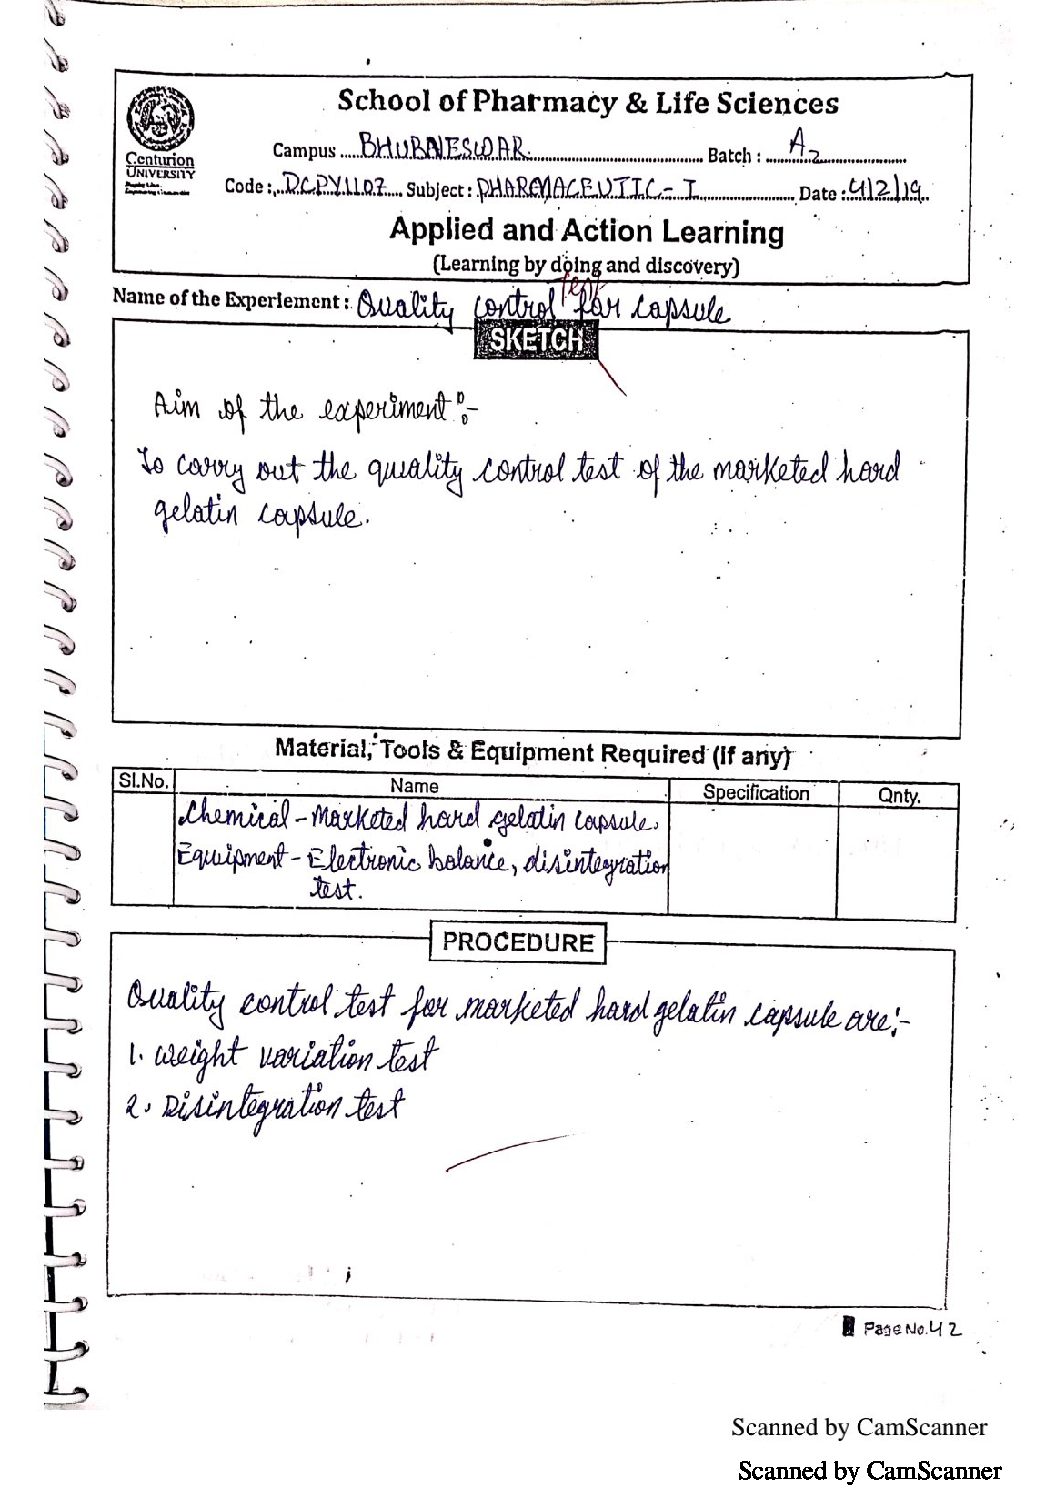 School of Pharmacy & Life Sciences
Centurion
UNIVERSITY
Campus BHUBNESWAR Batch : A2
Code : DCPY1107 Subject : PHARMACEUTIC-I Date : 4/2/19
Applied and Action Learning
(Learning by doing and discovery)
test
Name of the Experiement : Quality control for capsule
SKETCH
Aim of the experiment :-
To carry out the quality control test of the marketed hard
gelatin capsule.
Material, Tools & Equipment Required (If any)
Sl.No. Name Specification Qnty.
Chemical - Marketed hard gelatin capsule.
Equipment - Electronic balance, disintegration
test.
PROCEDURE
Quality control test for marketed hard gelatin capsule are:-
1. Weight variation test
2. Disintegration test
Page No. 42
Scanned by CamScanner
Scanned by CamScanner